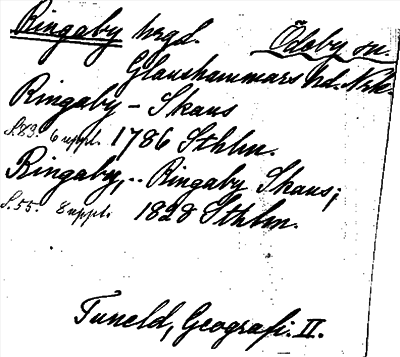 Ringaby hrgd. Ödeby sn.
Glanshammars hd. Nrk.
Ringaby - Skans
S. 83. 6 uppl. 1786 Sthlm.
Ringaby, .. Ringaby Skans;
S. 55. 8 uppl. 1828 Sthlm.
Tuneld, Geografi. II.